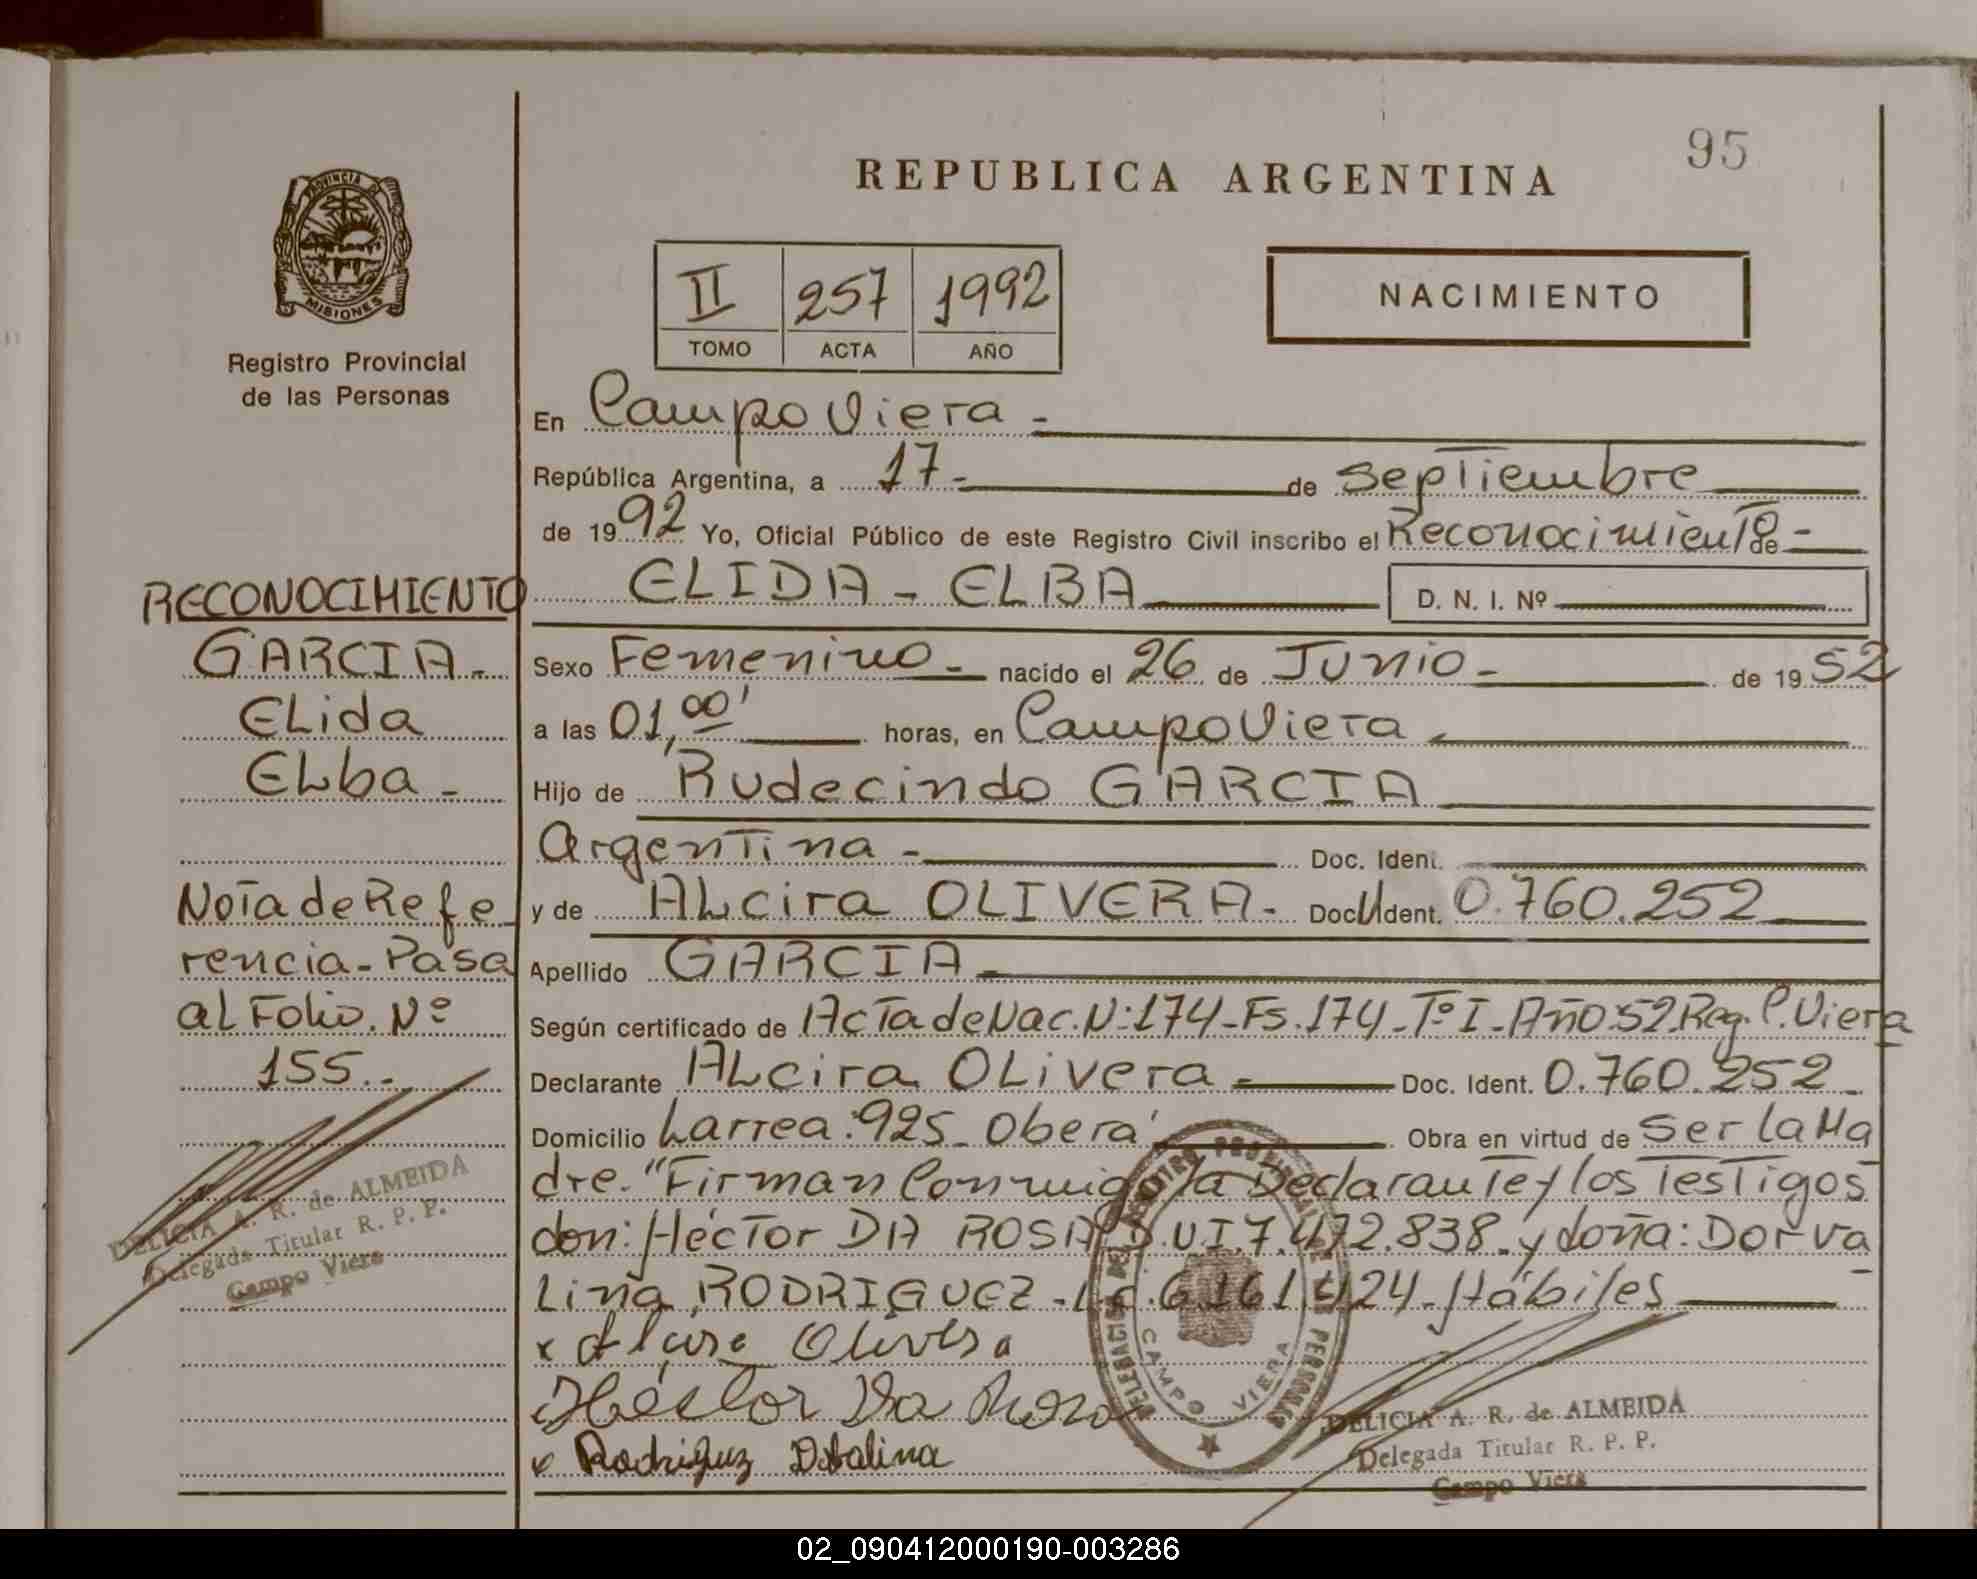 95
REPUBLICA ARGENTINA
PROVINCIA DE
MISIONES
Registro Provincial
de las Personas
II 257 1992
TOMO ACTA AÑO
NACIMIENTO
En Campo Viera -
República Argentina, a 17- de Septiembre
de 1992 Yo, Oficial Público de este Registro Civil inscribo el Reconocimiento de -
ELIDA - ELBA D. N. I. Nº
Sexo Femenino - nacido el 26 de Junio - de 1952
a las 01,00' horas, en Campo Viera -
Hijo de Rudecindo GARCIA
Argentina - Doc. Ident.
y de ALcira OLIVERA - Doc. U Ident. 0.760.252
Apellido GARCIA -
Según certificado de Acta de Nac. Nº 174 - Fs. 174 - Tº I - Año 52 Reg. C. Viera
Declarante ALcira OLivera - Doc. Ident. 0.760.252 -
Domicilio Larrea: 925 - Oberá Obra en virtud de Ser la Ma
dre. "Firman Conmigo la Declarante y los Testigos
don: Héctor DA ROSA D.U.I 7.472.838 - y doña: Dorva
Lina RODRIGUEZ - L.C. 6.161.424 - Hábiles
x Alcira Olivera
Héctor Da Rosa
x Rodriguz Dobalina
RECONOCIMIENTO
GARCIA -
ELida
ELba -
Nota de Refe
rencia - Pasa
al Folio. Nº
155. -
DELICIA A. R. de ALMEIDA
Delegada Titular R. P. P.
Campo Viera
DELEGACION DEL REGISTRO PROVINCIAL DE LAS PERSONAS
CAMPO VIERA
DELICIA A. R. de ALMEIDA
Delegada Titular R. P. P.
Campo Viera
02_090412000190-003286